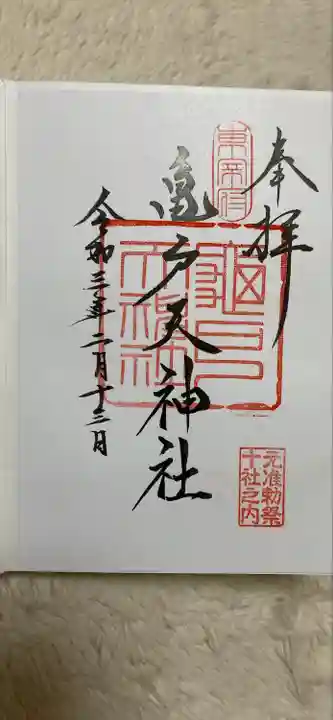 奉拝
東宰府
亀戸天神社
亀戸天神社
元准勅祭
十社之内
令和三年二月十三日